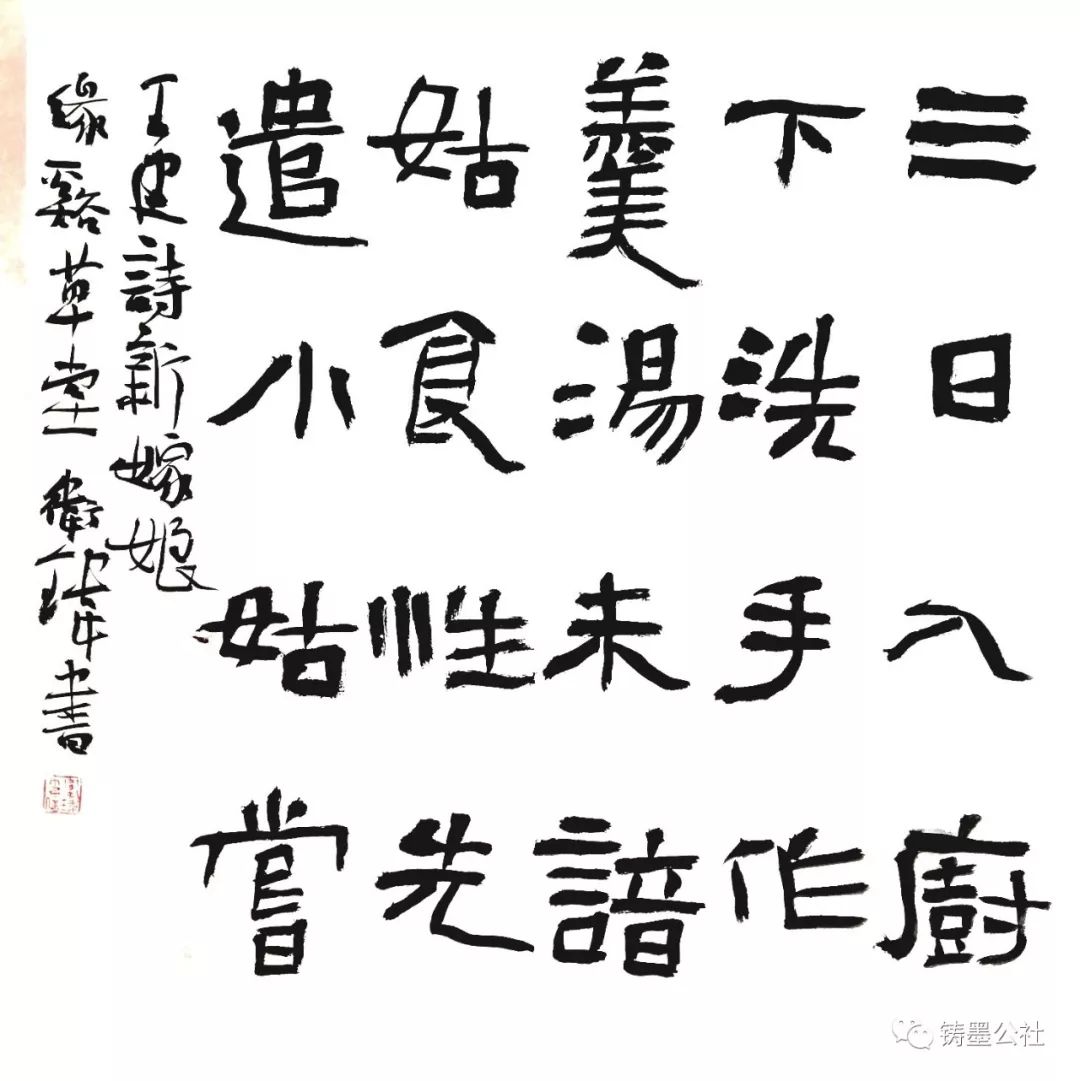 三日入廚
下洗手作
羹湯未諳
姑食性先
遣小姑嘗
王建詩新嫁娘
緣谿草堂 衛書
铸墨公社